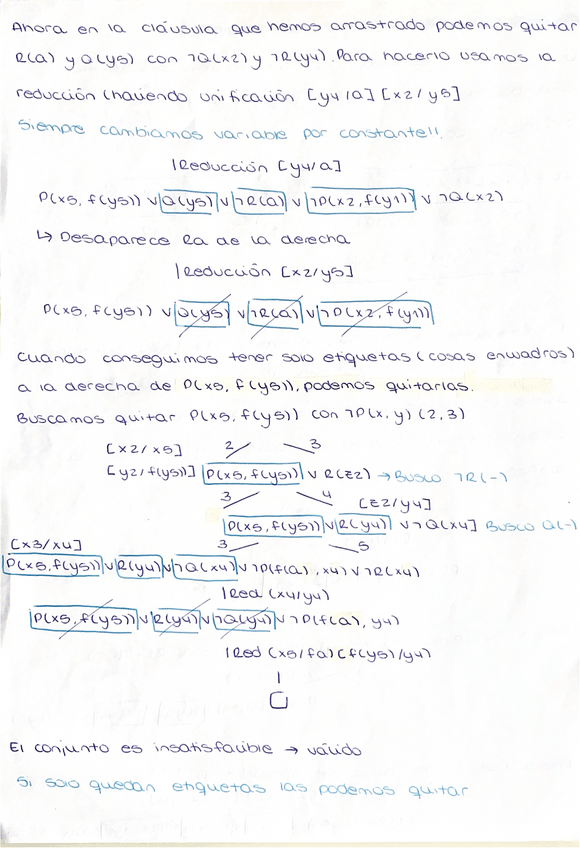 Ahora en la cláusula que hemos arrastrado podemos quitar
R(a) y Q(y5) con ¬Q(x2) y ¬R(y4). Para hacerlo usamos la
reducción (haciendo unificación [y4/a] [x2/y5]
Siempre cambiamos variable por constante!!.
|Reducción [y4/a]
P(x5, f(y5)) ∨ Q(y5) ∨ ¬R(a) ∨ ¬P(x2, f(y1)) ∨ ¬Q(x2)
↳ Desaparece Ra de la derecha
|Reducción [x2/y5]
P(x5, f(y5)) ∨ Q(y5) ∨ ¬R(a) ∨ ¬P(x2, f(y1))
Cuando conseguimos tener solo etiquetas (cosas en wadros)
a la derecha de P(x5, f(y5)), podemos quitarlas.
Buscamos quitar P(x5, f(y5)) con ¬P(x, y) (2, 3)
[x2/x5] 2 3
[y2/f(y5)] P(x5, f(y5)) ∨ R(z2) → Busco ¬R(-)
3 4 [z2/y4]
P(x5, f(y5)) ∨ R(y4) ∨ ¬Q(x4] Busco Q(-)
[x3/x4] 3 5
P(x5, f(y5)) ∨ R(y4) ∨ ¬Q(x4) ∨ ¬P(f(a), x4) ∨ ¬R(x4)
|Red (x4/y4)
P(x5, f(y5)) ∨ R(y4) ∨ ¬Q(y4) ∨ ¬P(f(a), y4)
|Red (x5/fa) (f(y5)/y4)
El conjunto es insatisfacible → válido
Si solo quedan etiquetas las podemos quitar